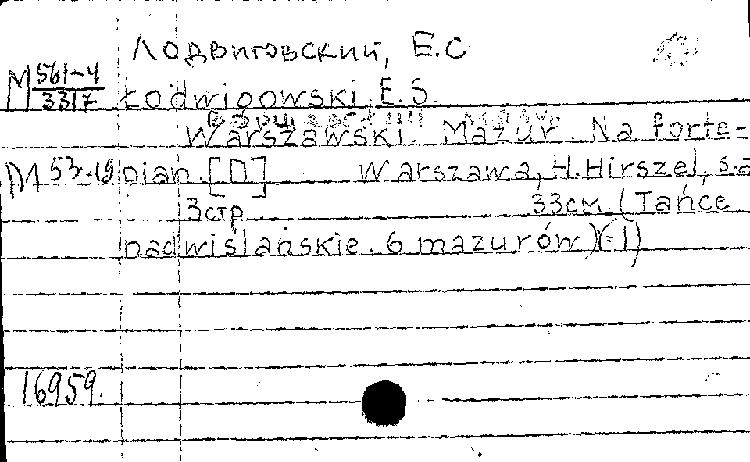 Лодвиговский, Е.С
М 561-4
3317
Łodwigowski E.S.
Warszawski Mazur. Na forte-
М 53-19 pian. [П] Warszawa, H. Hirszel, s.a
3стр 33см (Tańce
nadwiślańskie. 6 mazurów)(-1)
16959.